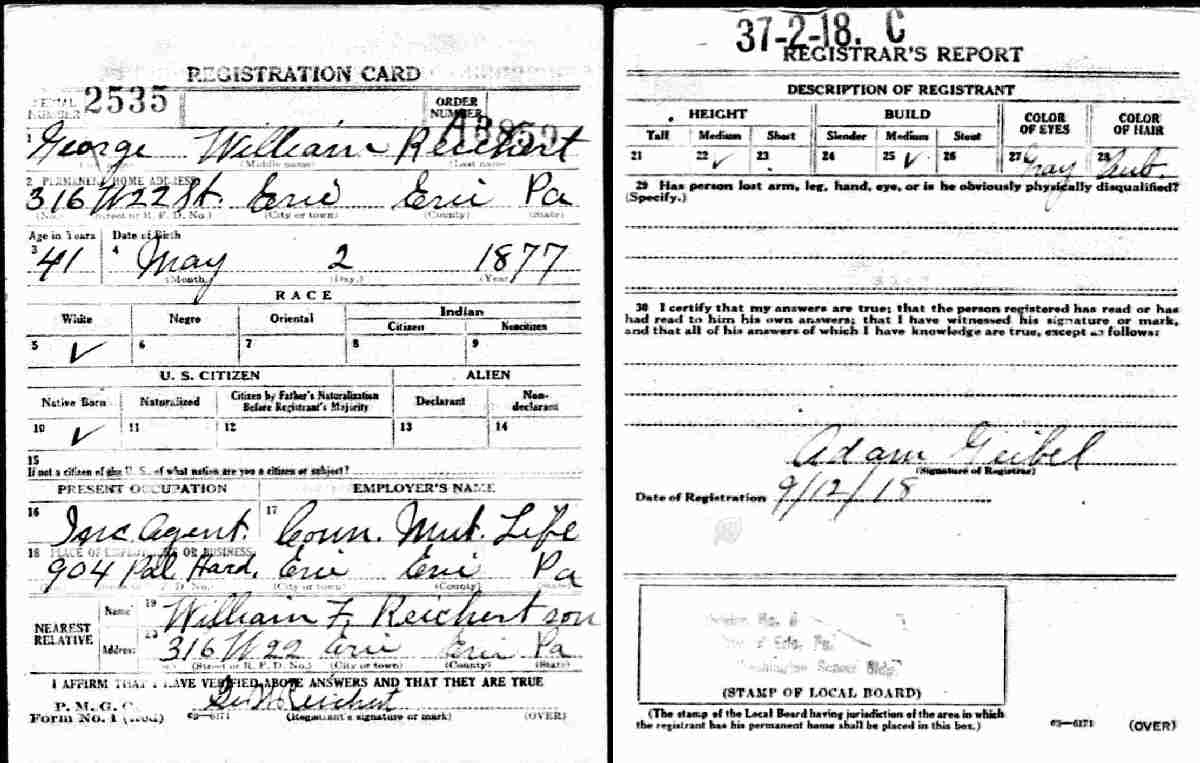 REGISTRATION CARD
SERIAL NUMBER 2535 ORDER NUMBER
1 George William Reichert
(Middle name) (Last name)
2 PERMANENT HOME ADDRESS
316 W 22 St. Erie Erie Pa
(No.) (Street or R. F. D. No.) (City or town) (County) (State)
Age in Years Date of Birth
3 41 4 May 2 1877
(Month.) (Day.) (Year)
RACE
White Negro Oriental Indian
Citizen Noncitizen
5 ✓ 6 7 8 9
U. S. CITIZEN ALIEN
Native Born Naturalized Citizen by Father's Naturalization Before Registrant's Majority Declarant Non-declarant
10 ✓ 11 12 13 14
15
If not a citizen of the U. S., of what nation are you a citizen or subject?
PRESENT OCCUPATION EMPLOYER'S NAME
16 Ins. Agent. 17 Conn. Mut. Life
18 PLACE OF EMPLOYMENT OR BUSINESS
904 Pal Hard. Erie Erie Pa
(City or town) (County) (State)
NEAREST RELATIVE Name 19 William F. Reichert son
Address 20 316 W 22 Erie Erie Pa
(Street or R. F. D. No.) (City or town) (County) (State)
I AFFIRM THAT I HAVE VERIFIED ABOVE ANSWERS AND THAT THEY ARE TRUE
P. M. G. O.
Form No. 1 (Red) 03—6171 Geo W Reichert (Registrant's signature or mark) (OVER)
37-2-18. C
REGISTRAR'S REPORT
DESCRIPTION OF REGISTRANT
HEIGHT BUILD COLOR OF EYES COLOR OF HAIR
Tall Medium Short Slender Medium Stout
21 22 ✓ 23 24 25 ✓ 26 27 Gray 28 Aub.
29 Has person lost arm, leg, hand, eye, or is he obviously physically disqualified?
(Specify.)
30 I certify that my answers are true; that the person registered has read or has
had read to him his own answers; that I have witnessed his signature or mark,
and that all of his answers of which I have knowledge are true, except as follows:
Adam Geibel
(Signature of Registrar)
Date of Registration 9/12/18
(STAMP OF LOCAL BOARD)
(The stamp of the Local Board having jurisdiction of the area in which
the registrant has his permanent home shall be placed in this box.)
03—6171 (OVER)